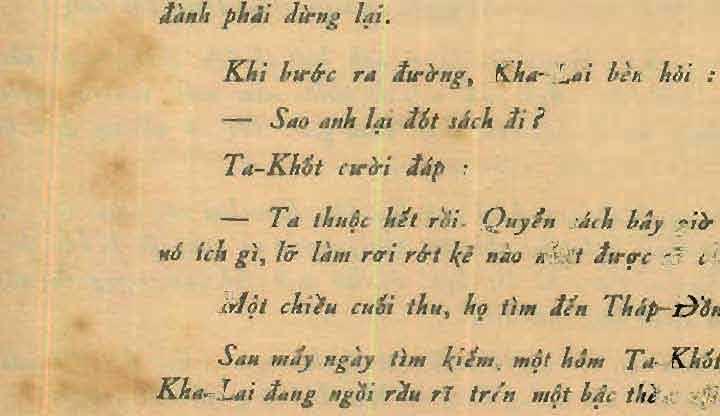 đành phải dừng lại.
Khi bước ra đường, Kha-Lai bèn hỏi :
— Sao anh lại đốt sách đi ?
Ta-Khốt cười đáp :
— Ta thuộc hết rồi. Quyển sách bây giờ
nó ích gì, lỡ làm rơi rớt kẻ nào được
Một chiều cuối thu, họ tìm đến
Sau mấy ngày tìm kiếm, một hôm Ta-Khốt
Kha-Lai đang ngồi rầu rĩ trên một bậc